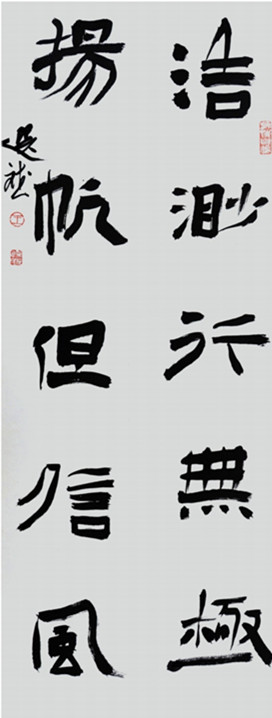 浩渺行無極
揚帆但信風